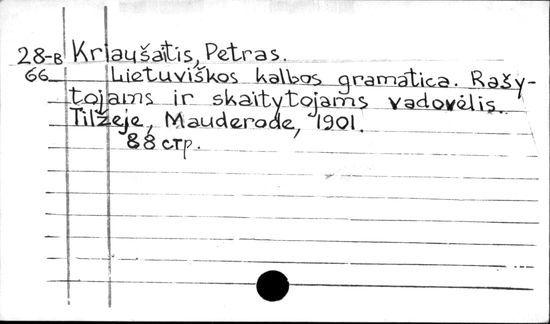 28-B Kriaušaitis, Petras.
66 Lietuviškos kalbos gramatica. Rašy-
tojams ir skaitytojams vadovėlis.
Tilžėje, Mauderode, 1901.
88 стр.